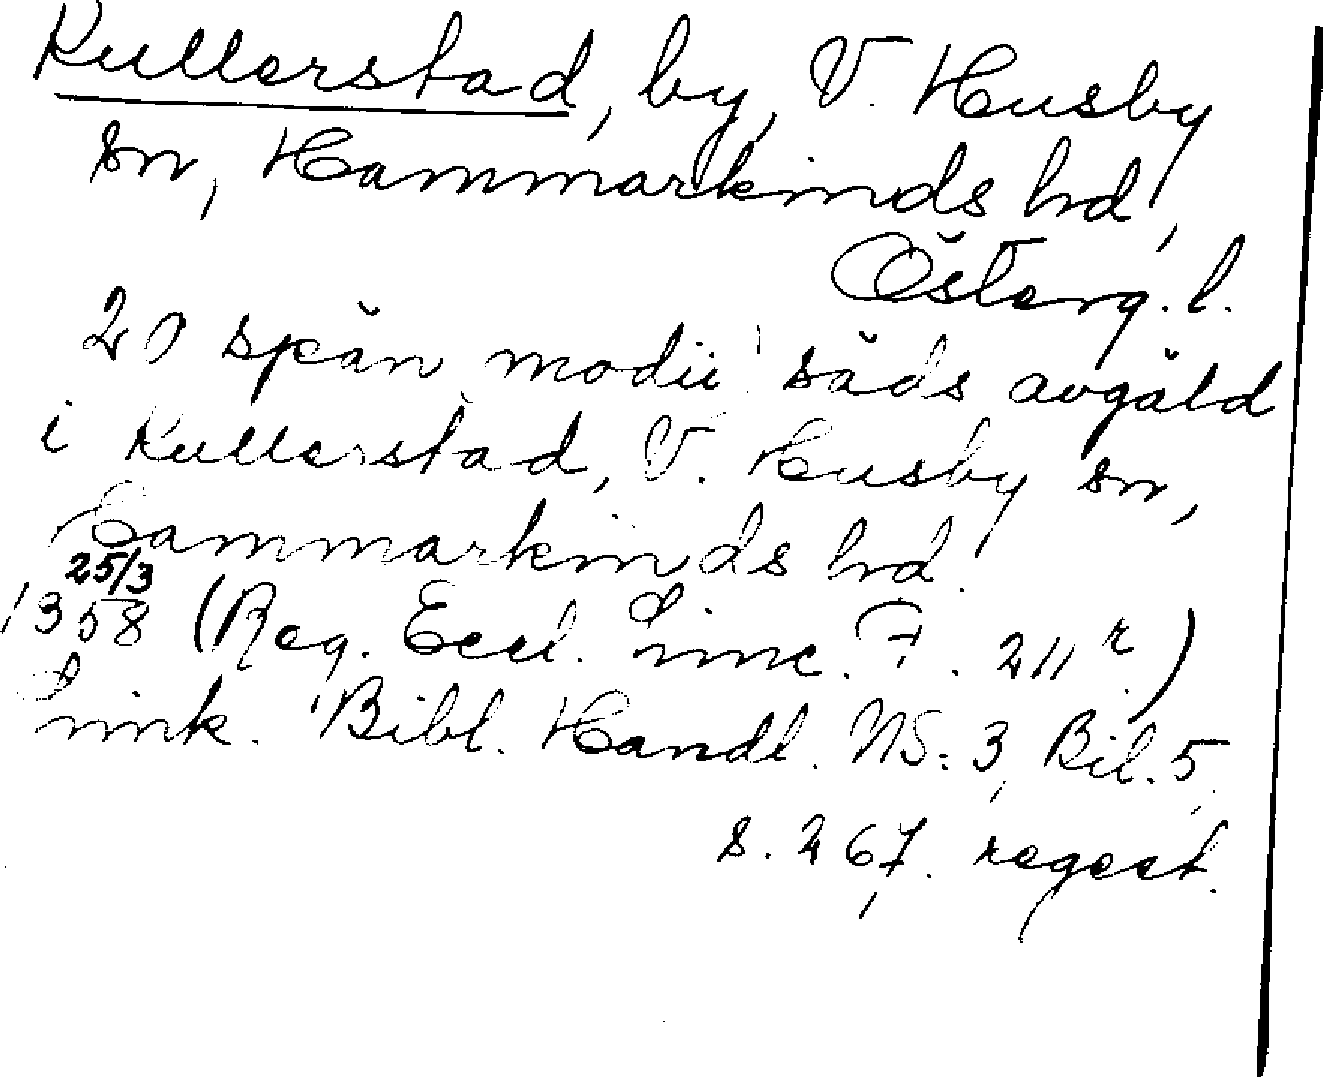 Kullerstad, by, V. Husby
sn, Hammarkinds hrd,
Österg. l.
20 spän modii säds avgäld
i Kullerstad, V. Husby sn,
Hammarkinds hrd.
25/3
1358 (Reg. Eccl. Linc. F. 211 r.)
Link. Bibl. Handl. NS: 3, Bil. 5,
s. 267. regest.